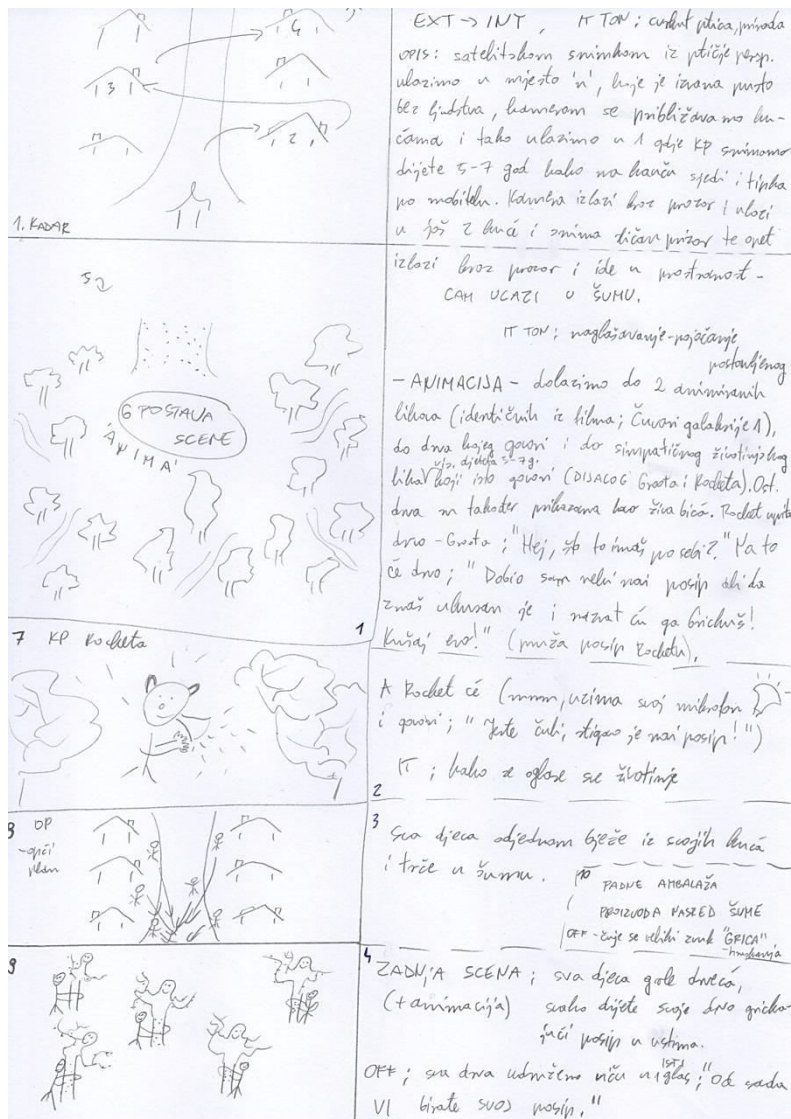 1. KADAR
3
4
2
EXT → INT, IT TON; cvrkut ptica, priroda
OPIS: satelitskom snimkom iz ptičje persp.
ulazimo u mjesto 'n', koje je izvana pusto
bez ljudstva, kamerom se približavamo ku-
ćama i tako ulazimo u 1 gdje KP snimamo
dijete 5-7 god kako na kauču sjedi i tipka
po mobitelu. Kamera izlazi kroz prozor i ulazi
u još 2 kuće i snima sličan prizor te opet
izlazi kroz prozor i ide u prostranost -
CAM ULAZI U ŠUMU.
IT TON; naglašavanje-pojačanje
postavljenog
6 POSTAVA
SCENE
ANIMA
1
- ANIMACIJA - dolazimo do 2 animiranih
likova (identičnih iz filma; Čuvari galaksije 1),
do drva kojeg govori i do simpatičnog životinjskog
vis. djeteta 5-7g.
lika koji isto govori (DIJALOG Groota i Rocketa). Ost.
drva su također prikazana kao živa bića. Rocket upita
drvo - Groota; "Hej, što to imaš po sebi?" Na to
će drvo; "Dobio sam neki novi posip ali da
znaš ukusan je i nazvat ću ga Grickuš!
Kušaj evo!" (pruža posip Rocketu).
7 KP Rocketa
2
A Rocket će (mmm, uzima svoj mikrofon
i govori; "Jeste čuli, stigao je novi posip!")
IT; kako se oglase sve životinje
8 OP
-opći
plan
3
Sva djeca odjednom bježe iz svojih kuća
i trče u šumu.
10
PADNE AMBALAŽA
PROIZVODA NASRED ŠUME
OFF - čuje se veliki zvuk "GRICA"
hruskanja
9
4
ZADNJA SCENA; sva djeca grle drveća,
(+ animacija) svako dijete svoje drvo gricka-
jući posip u ustima.
OFF; sva drva udruženo viču u 1 glas; "Od sada
ISTI
VI birate svoj posip."